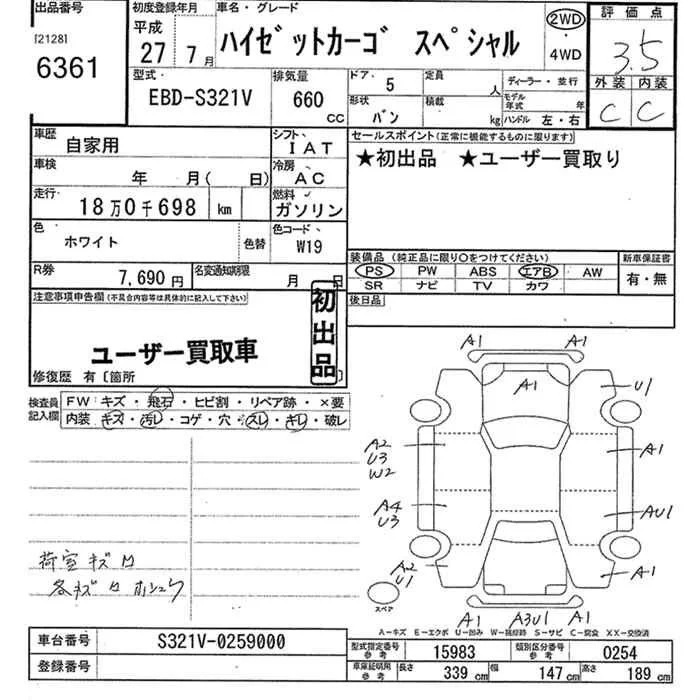 出品番号
[2128]
6361
初度登録年月
平成
27年 7月
車名・グレード
ハイゼットカーゴ スペシャル
2WD
・
4WD
評価点
3.5
外装 内装
C C
型式・
EBD-S321V
排気量
660
CC
ドア・ 5
定員 人
形状
バン
積載 kg
ディーラー・並行
モデル年式 年
ハンドル 左・右
車歴
自家用
シフト、
IAT
セールスポイント(正常に機能するものに限ります)
★初出品 ★ユーザー買取り
車検
年 月( 日)
冷房、
AC
走行・
18万0千698 km
燃料
ガソリン
色
ホワイト
色替
色コード、
W19
装備品(純正品に限り〇をつけてください)
PS PW ABS エアB AW
SR ナビ TV カワ
新車保証書
有・無
R券
7,690円
名変通知期限
月 日
後日品
注意事項申告欄(不具合内容等は具体的に記入して下さい)
初出品
ユーザー買取車
修復歴 有〔箇所 〕
検査員記入欄
FW:キズ・飛石・ヒビ割・リペア跡・×要
内装・キズ・汚レ・コゲ・穴・スレ・キレ・破レ
荷室キズ ロ
各キズ ロ ホシュウ
A1 A1
A1
U1
A2
U3
W2
A1
A4
U3
AU1
A2
U1
A1
スペア
A1 A3U1 A1
A-キズ E-エクボ U-凹み W-補修跡 S-サビ C-腐食 XX-交換済
車台番号
S321V-0259000
登録番号
型式指定番号
参考
15983
類別区分番号
参考
0254
車庫証明用
参考
長さ 339 cm
幅 147 cm
高さ 189 cm